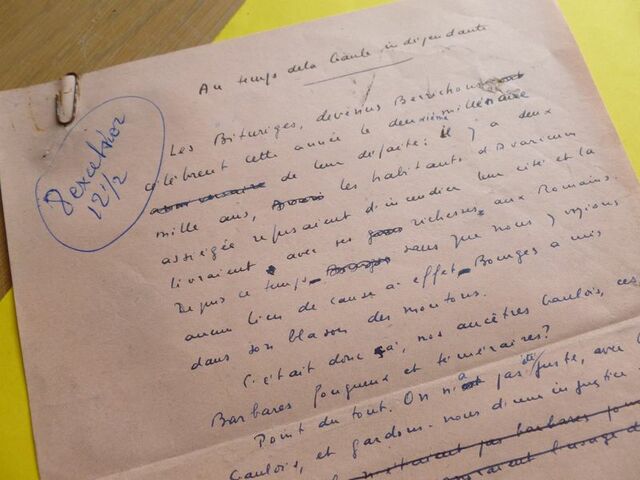 Au temps de la Gaule indépendante
8 excelsior
12 1/2
Les Bituriges, devenus Berrichons
célèbrent cette année le deuxième millénaire
de leur défaite : il y a deux
mille ans, les habitants d'Avaricum
assiégée refusaient d'incendier leur cité et la
livraient avec ses richesses aux Romains.
Depuis ce temps sans que nous y voyions
aucun lien de cause à effet Bourges a mis
dans son blason des moutons.
C'était donc ça, nos ancêtres Gaulois, ces
Barbares fougueux et téméraires ?
Point du tout. On n'a pas été juste, avec
Gaulois, et gardons-nous d'une injustice
n'étaient pas barbares
l'usage